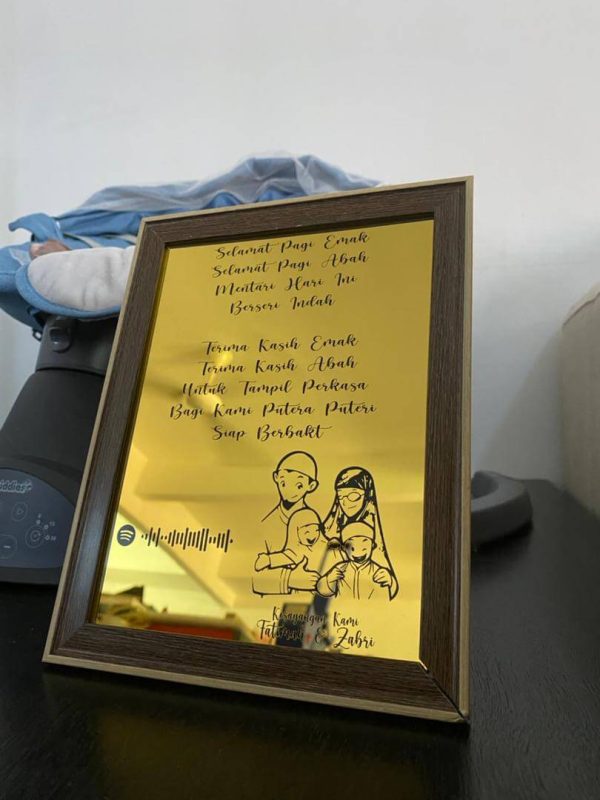 Selamat Pagi Emak
Selamat Pagi Abah
Mentari Hari Ini
Berseri Indah
Terima Kasih Emak
Terima Kasih Abah
Untuk Tampil Perkasa
Bagi Kami Putera Puteri
Siap Berbakt
Kesayangan Kami
Fatimah & Zabri